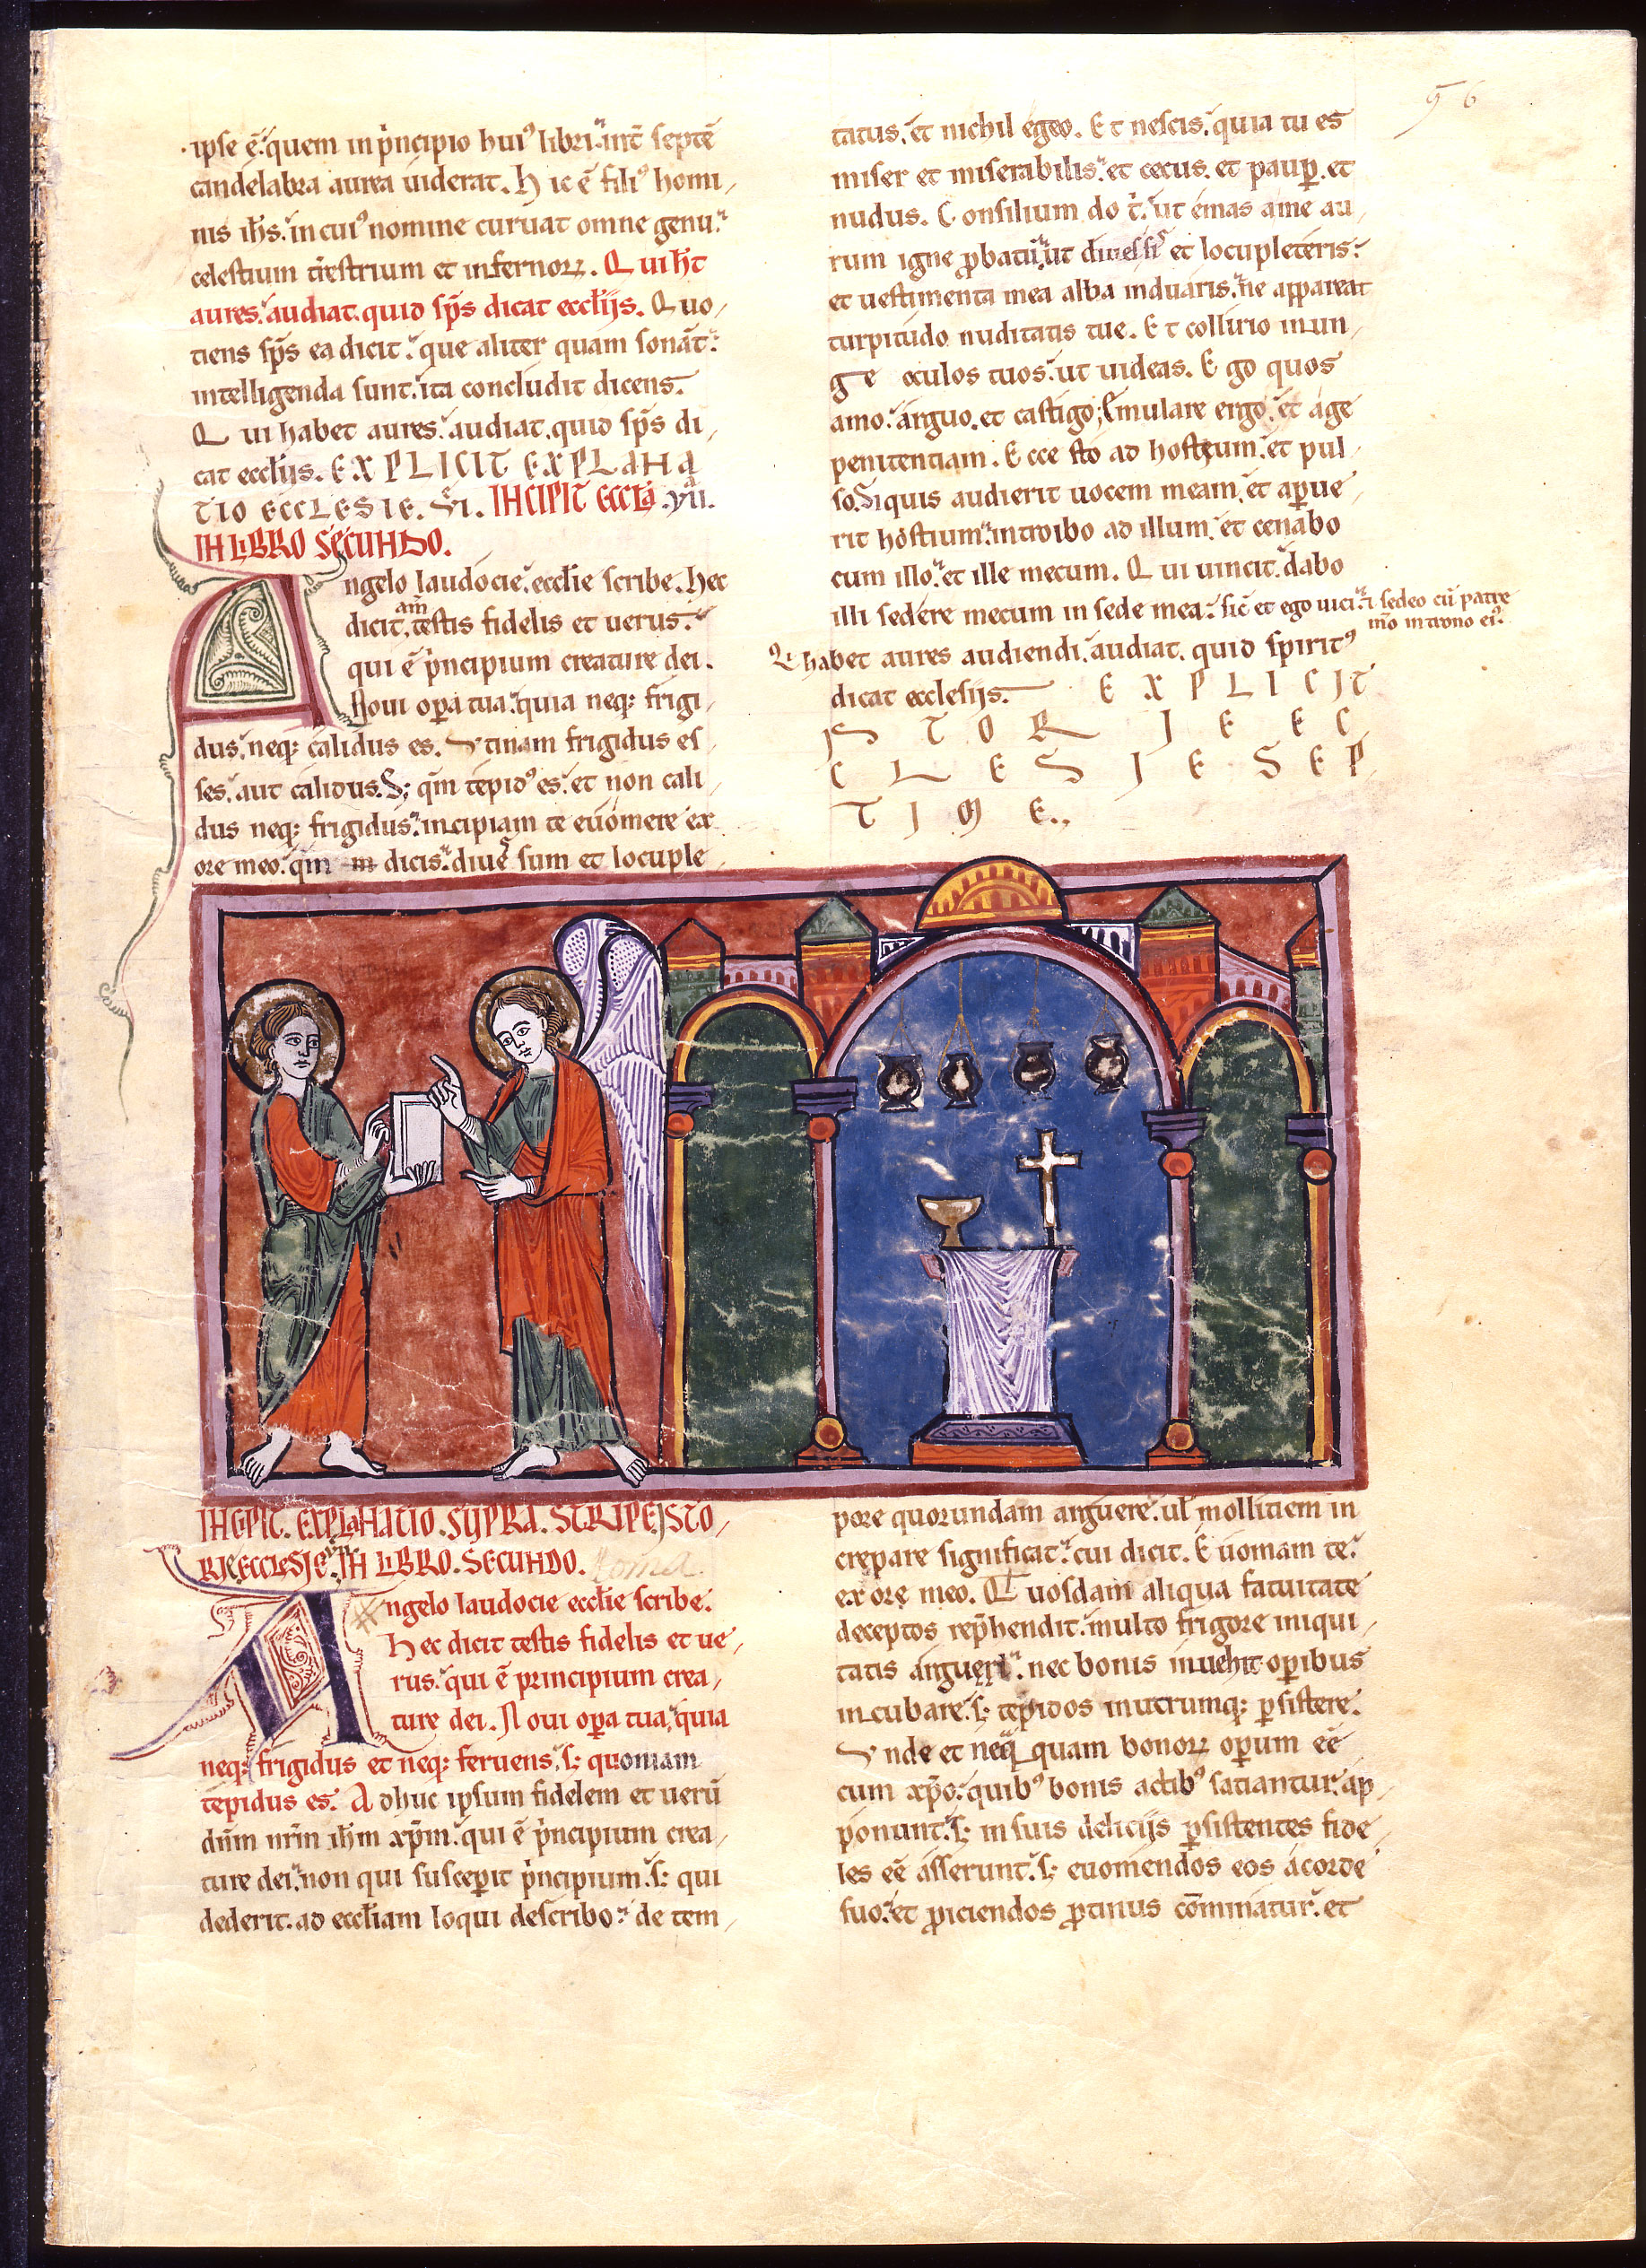 ipse ē. quem in pͥncipio huiꝰ libri. int̄ septē
candelabra aurea uiderat. Hic ē filiꝰ homi,
nis ih̄s. in cuiꝰ nomine curuat omne genu.
celestium tr̄estrium et infernoꝝ. Qui h̄t
aures. audiat. quid sp̄s dicat eccl̄ijs. Quo,
tiens sp̄s ea dicit. que aliter quam sonāt.
intelligenda sunt. ita concludit dicens.
Qui habet aures. audiat. quid sp̄s di,
cat eccl̄ijs. EXPLICIT EXPLANA
TIO ECCLESIE. VI. INCIPIT ECCLA .VII.
IN LIBRO SECUNDO.
Angelo laudocie. eccl̄ie scribe. hec
dicit. am̄ testis fidelis et uerus.
qui ē pͥncipium creature dei.
Noui oꝑa tua. quia neqꝫ frigi,
dus. neqꝫ calidus es. Vtinam frigidus es,
ses. aut calidus. Sꝫ qm̄ tepidꝰ es. et non cali,
dus neqꝫ frigidus. incipiam te euomere ex
ore meo. qm̄ dicis. diues sum et locuple,
56
tatus. et nichil egeo. Et nescis. quia tu es
miser et miserabilis. et cecus. et pauꝑ. et
nudus. Consilium do t̄. ut emas a me au,
rum igne ꝓbatū. ut et locupleteris.
et uestimenta mea alba induaris. ne appareat
turpitudo nuditatis tue. Et collirio inun,
ge oculos tuos. ut uideas. Ego quos
amo. arguo. et castigo; Emulare ergo. et age
penitentiam. Ecce sto ad hostium. et pul,
so. Siquis audierit uocem meam. et aꝑue,
rit hostium. introibo ad illum. et cenabo
cum illo. et ille mecum. Qui uincit. dabo
illi sedere mecum in sede mea. sic̄ et ego uici. ⁊ sedeo cū patre
mo in trono eiꝰ.
Qi habet aures audiendi. audiat. quid spiritꝰ
dicat ecclesijs. EXPLICIT
ISTORIE EC
CLESIE SEP
TIME.
INCIPIT. EXPLANATIO. SUPRA. SCRIPE ISTO,
RIE ECCLESIE VII. IN LIBRO. SECUNDO. Roma.
Angelo laudocie eccl̄ie scribe.
Hec dicit testis fidelis et ue,
rus. qui ē principium crea,
ture dei. Noui oꝑa tua. quia
neqꝫ frigidus et neqꝫ feruens. sꝫ quoniam
tepidus es. Adhuc ipsum fidelem et uerū
dn̄m nr̄m ih̄m xp̄m. qui ē pͥncipium crea,
ture dei. non qui susceꝑit pͥncipium. sꝫ qui
dederit. ad eccl̄iam loqui describo. de tem,
pore quorundam anguere. ul̄ mollitiem in
crepare significat. cui dicit. Euomam te.
ex ore meo. Quosdam aliqua fatuitate
deceptos rep̄hendit. multo frigore iniqui,
tatis nec bonis inuehit oꝑibus
incubare. sꝫ tepidos inutrumqꝫ ꝑsistere.
Vnde et neqͣquam bonoꝝ oꝑum eē
cum xp̄o. quibꝰ bonis actibꝰ satiantur. ap,
ponunt. sꝫ in suis delicijs ꝑsistentes fide,
les eē asserunt. sꝫ euomendos eos acorde
suo. et ꝓiciendos ꝓtinus com̄minatur. et